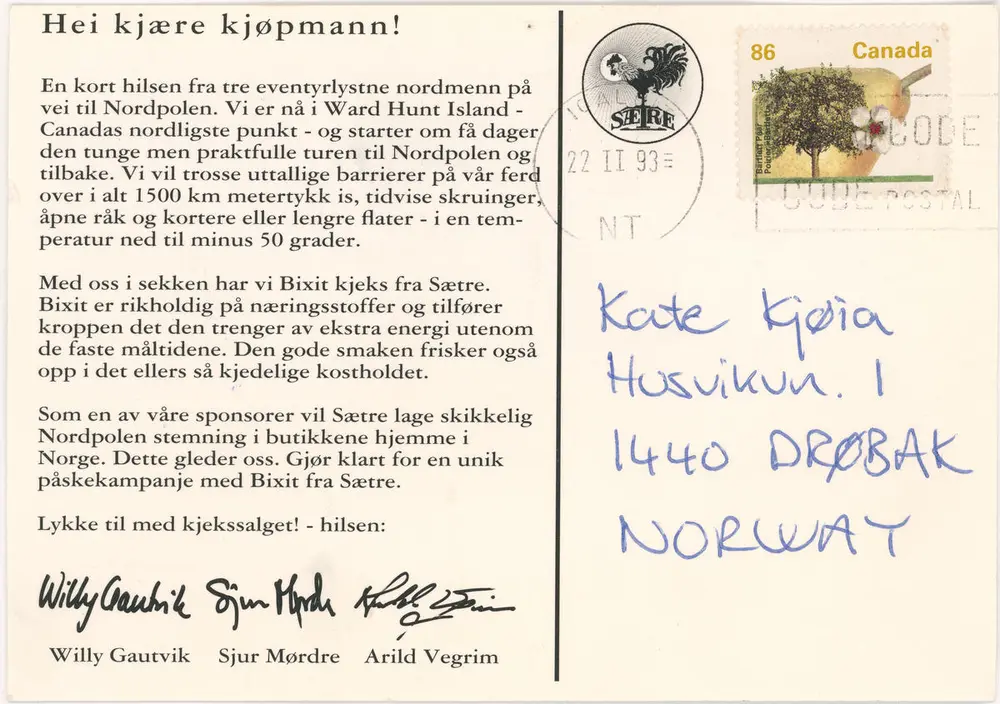 Hei kjære kjøpmann!
En kort hilsen fra tre eventyrlystne nordmenn på
vei til Nordpolen. Vi er nå i Ward Hunt Island -
Canadas nordligste punkt - og starter om få dager
den tunge men praktfulle turen til Nordpolen og
tilbake. Vi vil trosse uttallige barrierer på vår ferd
over i alt 1500 km metertykk is, tidvise skruinger,
åpne råk og kortere eller lengre flater - i en tem-
peratur ned til minus 50 grader.
Med oss i sekken har vi Bixit kjeks fra Sætre.
Bixit er rikholdig på næringsstoffer og tilfører
kroppen det den trenger av ekstra energi utenom
de faste måltidene. Den gode smaken frisker også
opp i det ellers så kjedelige kostholdet.
Som en av våre sponsorer vil Sætre lage skikkelig
Nordpolen stemning i butikkene hjemme i
Norge. Dette gleder oss. Gjør klart for en unik
påskekampanje med Bixit fra Sætre.
Lykke til med kjekssalget! - hilsen:
Willy Gautvik Sjur Mørdre
Willy Gautvik Sjur Mørdre Arild Vegrim
SÆTRE
22 II 93
NT
86 Canada
CODE
CODE POSTAL
Kate Kjøia
Husvikvn. 1
1440 DRØBAK
NORWAY